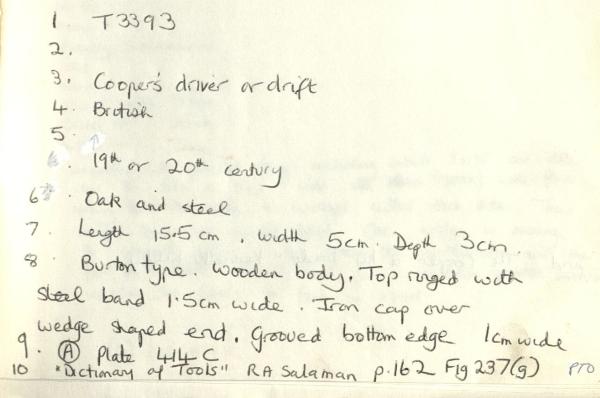 1. T3393
2.
3. Cooper's driver or drift
4. British
5.
19th or 20th century
6. Oak and steel
7. Length 15.5cm. width 5cm. Depth 3cm.
8 Burton type. Wooden body. Top ringed with
steel band 1.5cm wide. Iron cap over
wedge shaped end. Grooved bottom edge 1cm wide
9. (A) Plate 414 C
10 "Dictionary of Tools" R A Salaman p.162 Fig 237(g) PTO